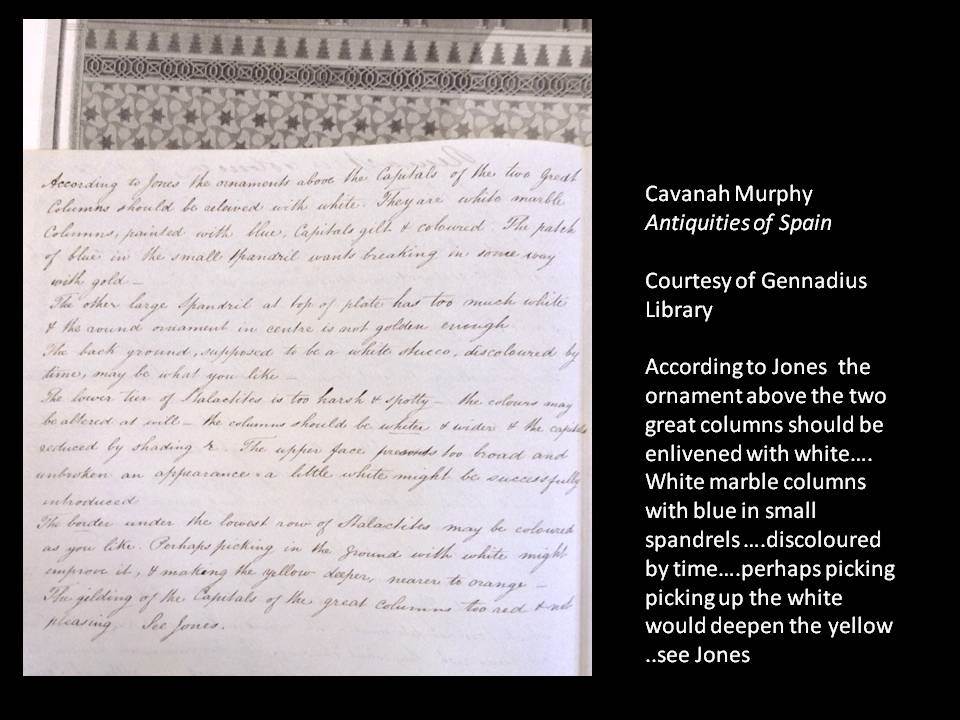 According to Jones the ornaments above the Capitals of the two Great
Columns should be relieved with white. They are white marble
Columns, painted with blue, Capitals gilt & coloured. The patch
of blue in the small Spandril wants breaking in some way
with gold —
The other large Spandril at top of plate has too much white
& the round ornament in centre is not golden enough.
The back ground, supposed to be a white stucco, discoloured by
time, may be what you like —
The lower tier of Stalactites is too harsh & spotty — the colours may
be altered at will — the columns should be whiter & wider & the capitals
reduced by shading &. The upper face presents too broad and
unbroken an appearance a little white might be successfully
introduced
The border under the lowest row of Stalactites may be coloured
as you like. Perhaps picking in the ground with white might
improve it, & making the yellow deeper, nearer to orange —
The gilding of the Capitals of the great columns too red & not
pleasing. See Jones.
Cavanah Murphy
Antiquities of Spain
Courtesy of Gennadius
Library
According to Jones the
ornament above the two
great columns should be
enlivened with white....
White marble columns
with blue in small
spandrels ....discoloured
by time....perhaps picking
picking up the white
would deepen the yellow
..see Jones